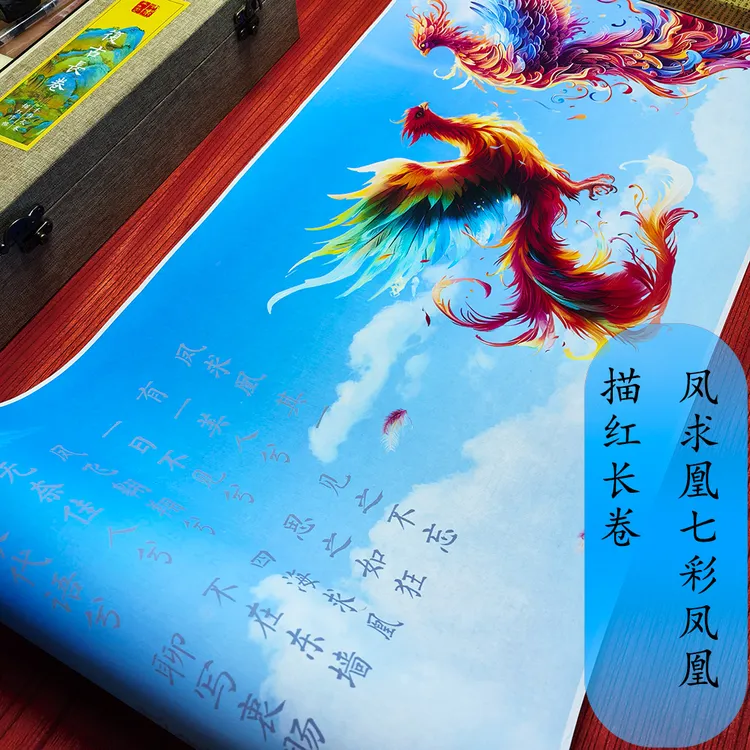 凤求凰七彩凤凰
描红长卷
凤求凰
有一美人兮
见之不忘
一日不见兮
思之如狂
凤飞翱翔兮
四海求凰
无奈佳人兮
不在东墙
代语兮
聊写衷肠